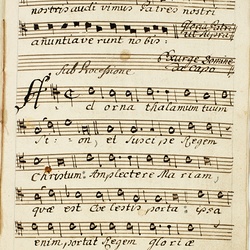 nostris audi vimus Patres nostri
Gloria Patri
ut supra
anuntiaverunt nobis.
Exurge Domine
da Capo
Sub Processione.
A dorna thalamum tuum
Si on, et Suscipe Regem
Christum Amplectere Mariam,
quæ est Cœlestis porta ipsa
enim portat Regem gloriæ